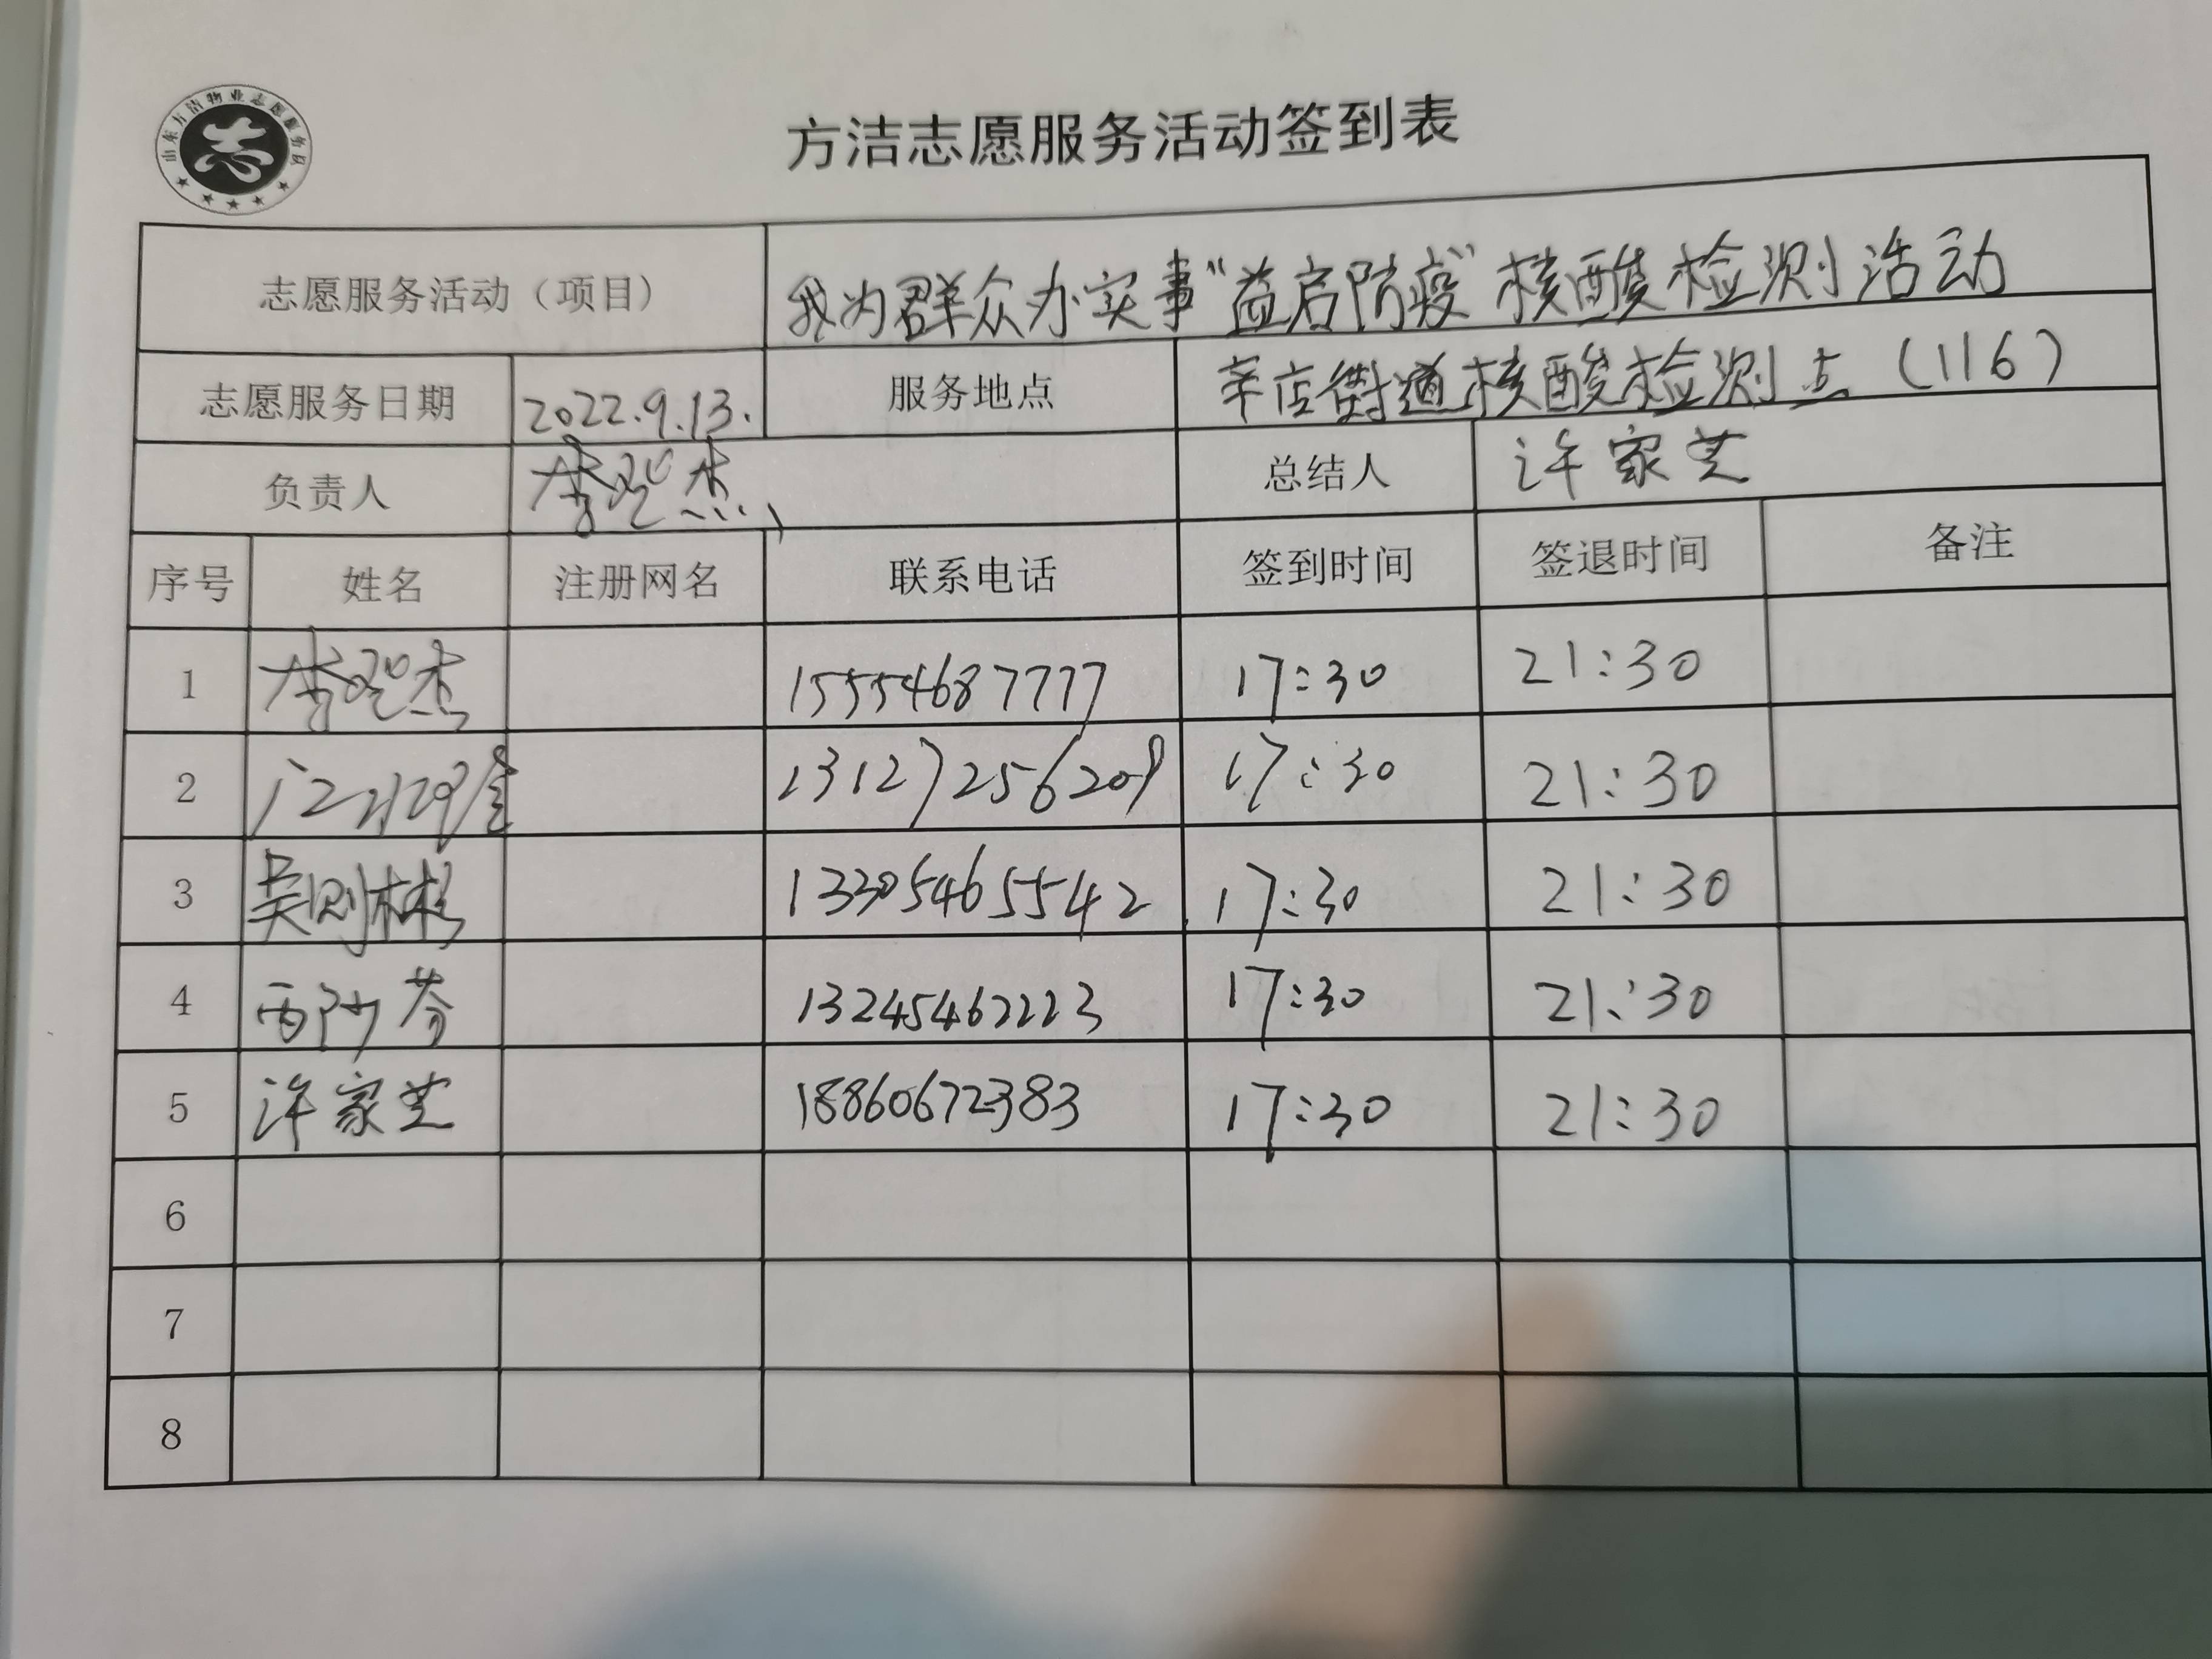 山东方洁物业志愿服务队
志
方洁志愿服务活动签到表
志愿服务活动（项目） 我为群众办实事“益启防疫”核酸检测活动
志愿服务日期 2022.9.13. 服务地点 辛店街道核酸检测点（116）
负责人 总结人 许家芝
序号 姓名 注册网名 联系电话 签到时间 签退时间 备注
1 15554687777 17:30 21:30
2 13127256209 17:30 21:30
3 吴则彬 13305465542 17:30 21:30
4 13245462223 17:30 21:30
5 许家芝 18860672383 17:30 21:30
6
7
8